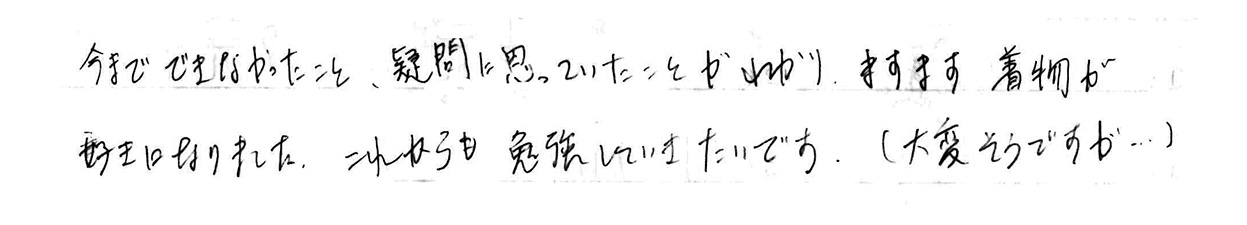 今までできなかったこと、疑問に思っていたことがわかり、ますます着物が
好きになりました。これからも勉強していきたいです。(大変そうですが…)